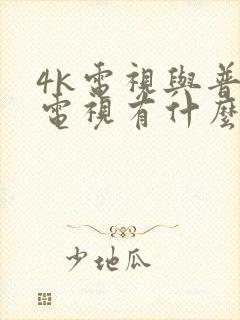 4k電視與普
電視有什麼
少地瓜